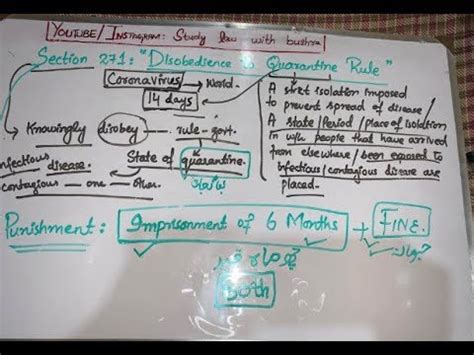 YOUTUBE/INSTAGRAM: Study law with bushra
Section 271: "Disobedience to Quarantine Rule"
Coronavirus → World.
14 days
Knowingly disobey — rule-govt.
infectious disease.
contagious — one — other.
State of quarantine.
A strict isolation imposed
to prevent spread of disease
A state/Period/place of isolation
in wh people that have arrived
from elsewhere/been exposed to
infectious/contagious disease are
placed.
Punishment: Imprisonment of 6 Months + FINE.
جرمانہ
چھ ماہ قید
Both